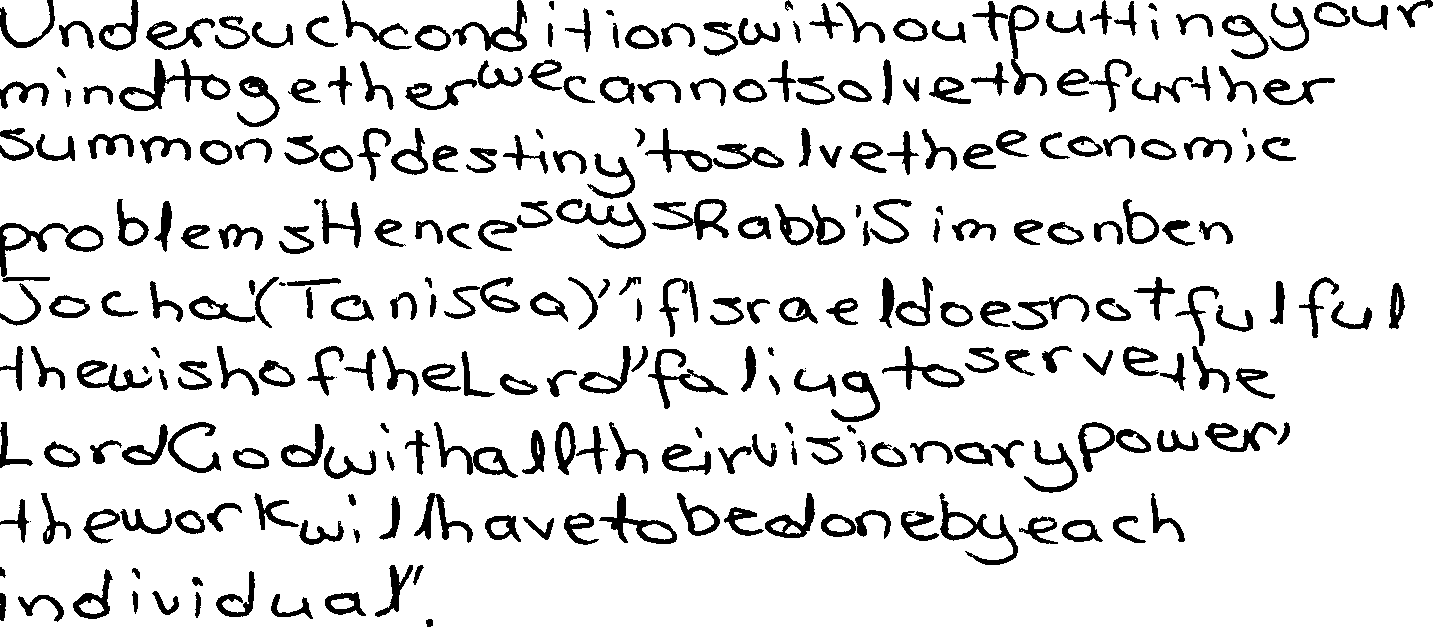 Under such conditions without putting your
mind together we cannot solve the further
summons of destiny' to solve the economic
problems Hence says Rabbi Simeon ben
Jocha' (Tanis6a)' "if Israel does not fulful
the wish of the Lord' faliug to serve the
Lord God with all their visionary power'
the work will have to be done by each
individual".